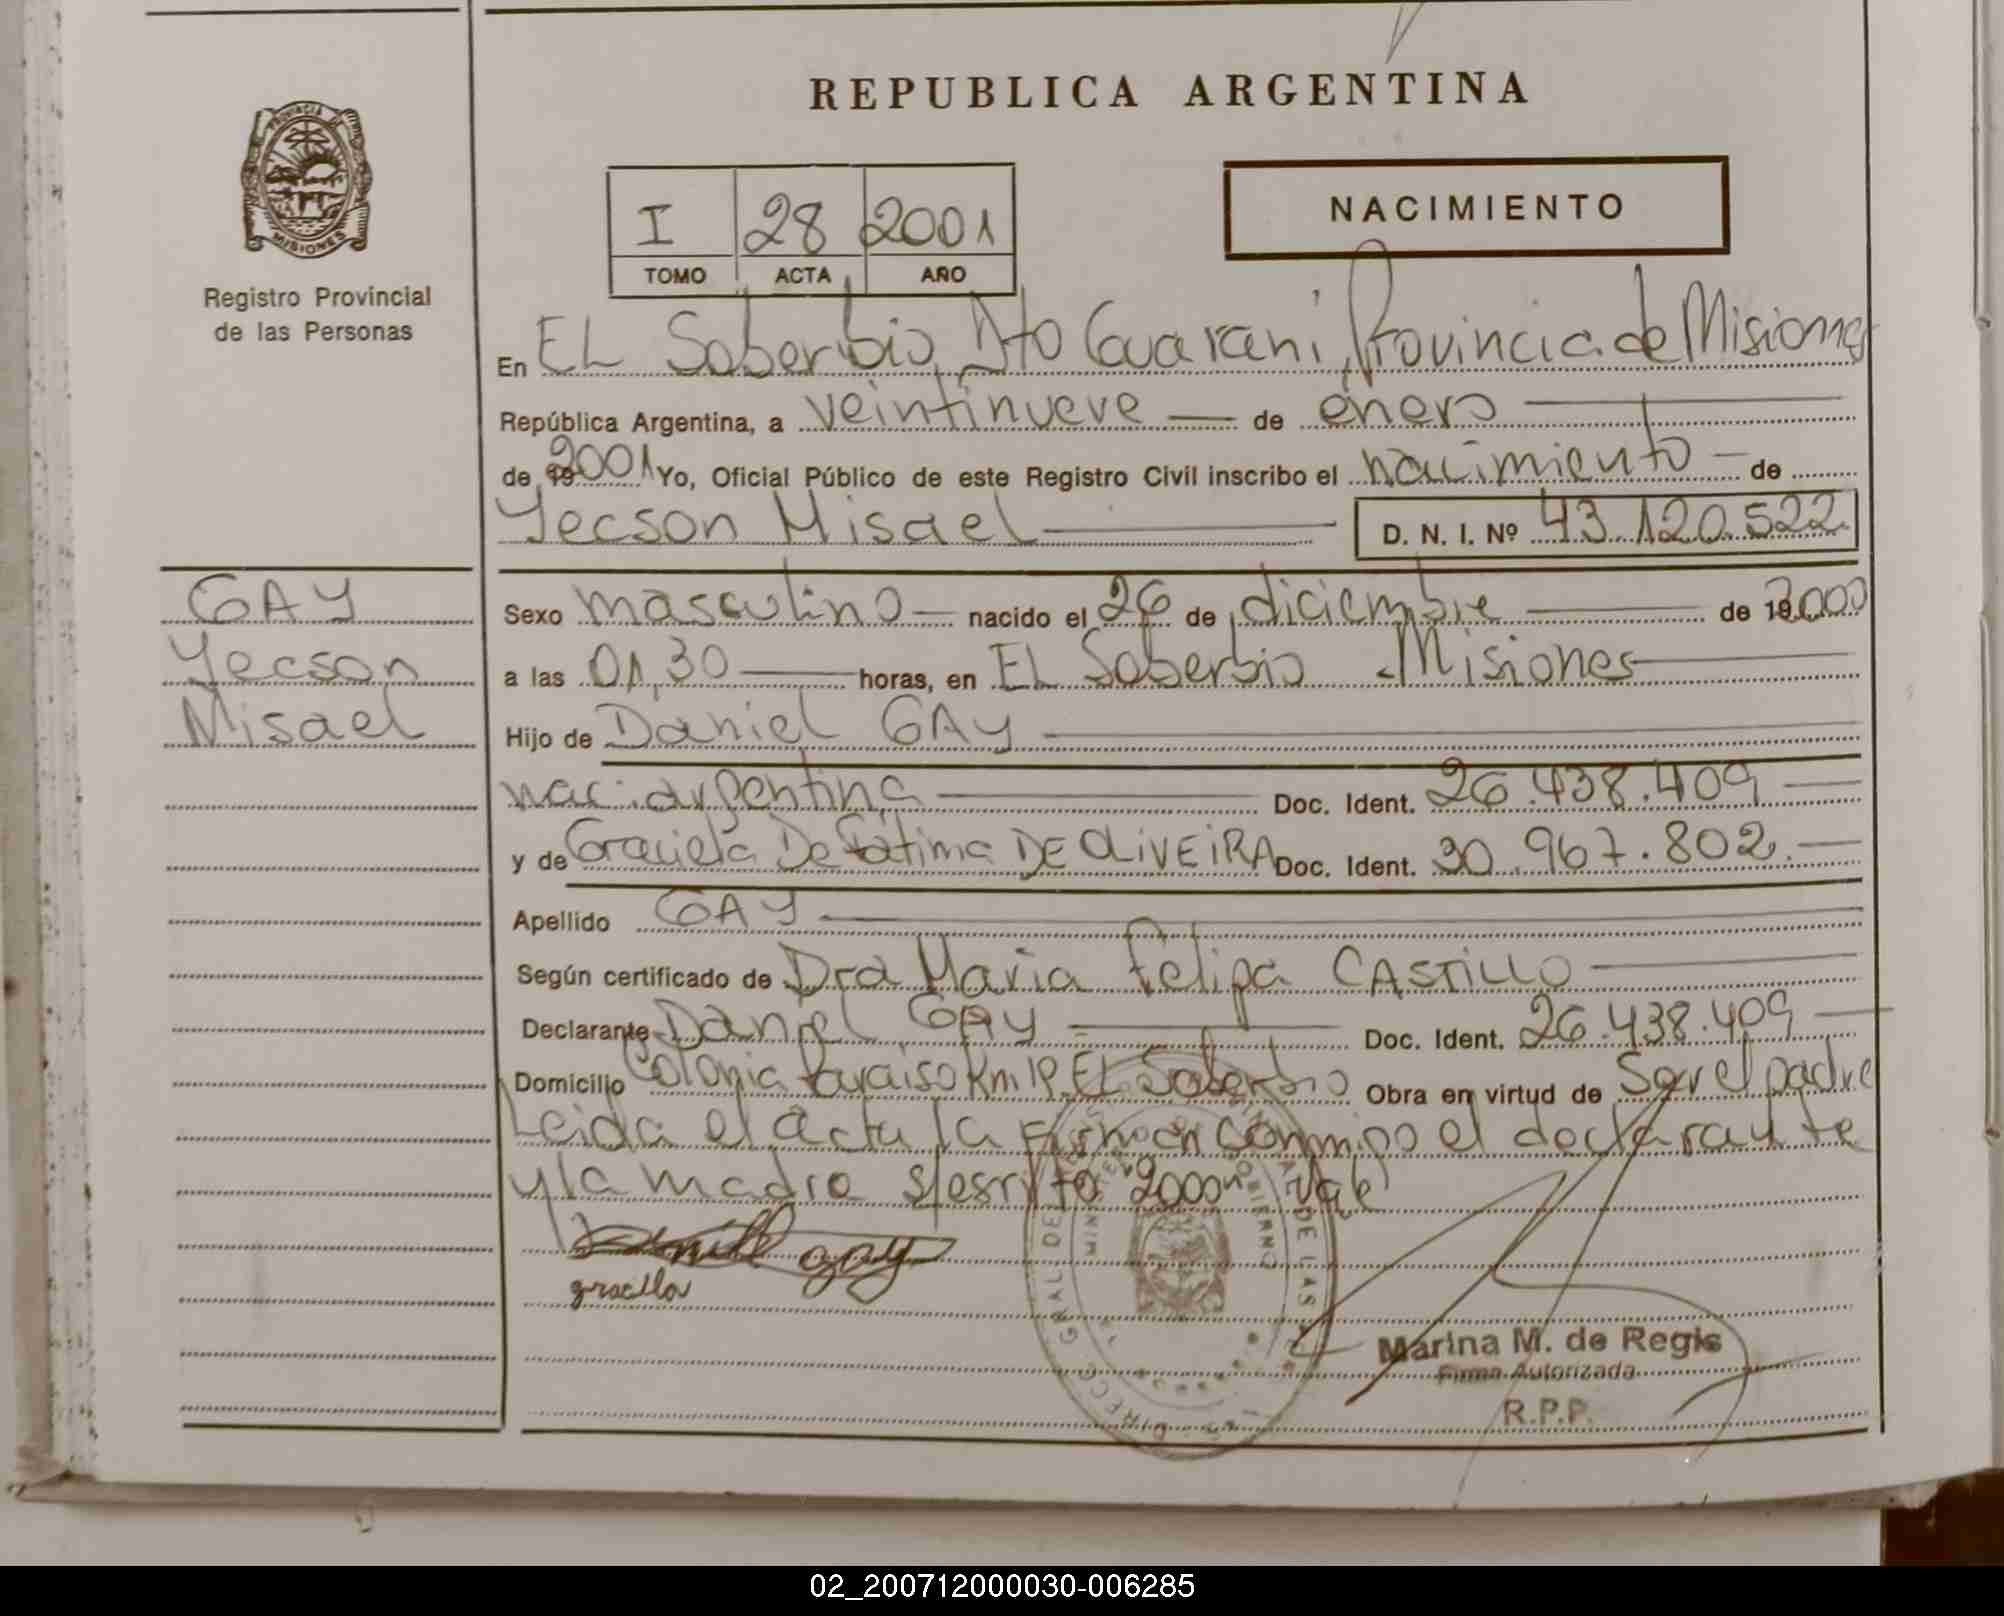 REPUBLICA ARGENTINA
PROVINCIA D
MISIONES
Registro Provincial
de las Personas
I 28 2001
TOMO ACTA AÑO
NACIMIENTO
En EL Soberbio, Dto Guarani, Provincia de Misiones
República Argentina, a veintinueve de enero
de 19 2001 Yo, Oficial Público de este Registro Civil inscribo el nacimiento de
Yecson Misael D. N. I. Nº 43.120.522
GAY
Yecson
Misael
Sexo masculino nacido el 26 de diciembre de 19 2000
a las 01,30 horas, en EL Soberbio - Misiones
Hijo de Daniel GAY
nac. argentina Doc. Ident. 26.438.409
y de Graciela De Fatima DE OLiVEiRA Doc. Ident. 30.967.802.
Apellido GAY
Según certificado de Dra Maria Felipa CASTiLLO
Declarante Daniel GAY Doc. Ident. 26.438.409
Domicilio Colonia Paraiso Km 18 EL Soberbio Obra en virtud de Ser el padre
Leida el acta la firman conmigo el declarante
y la madre s/esrito "2000" Vale
gay
graciela
Marina M. de Regis
Firma Autorizada
R.P.P.
02_200712000030-006285